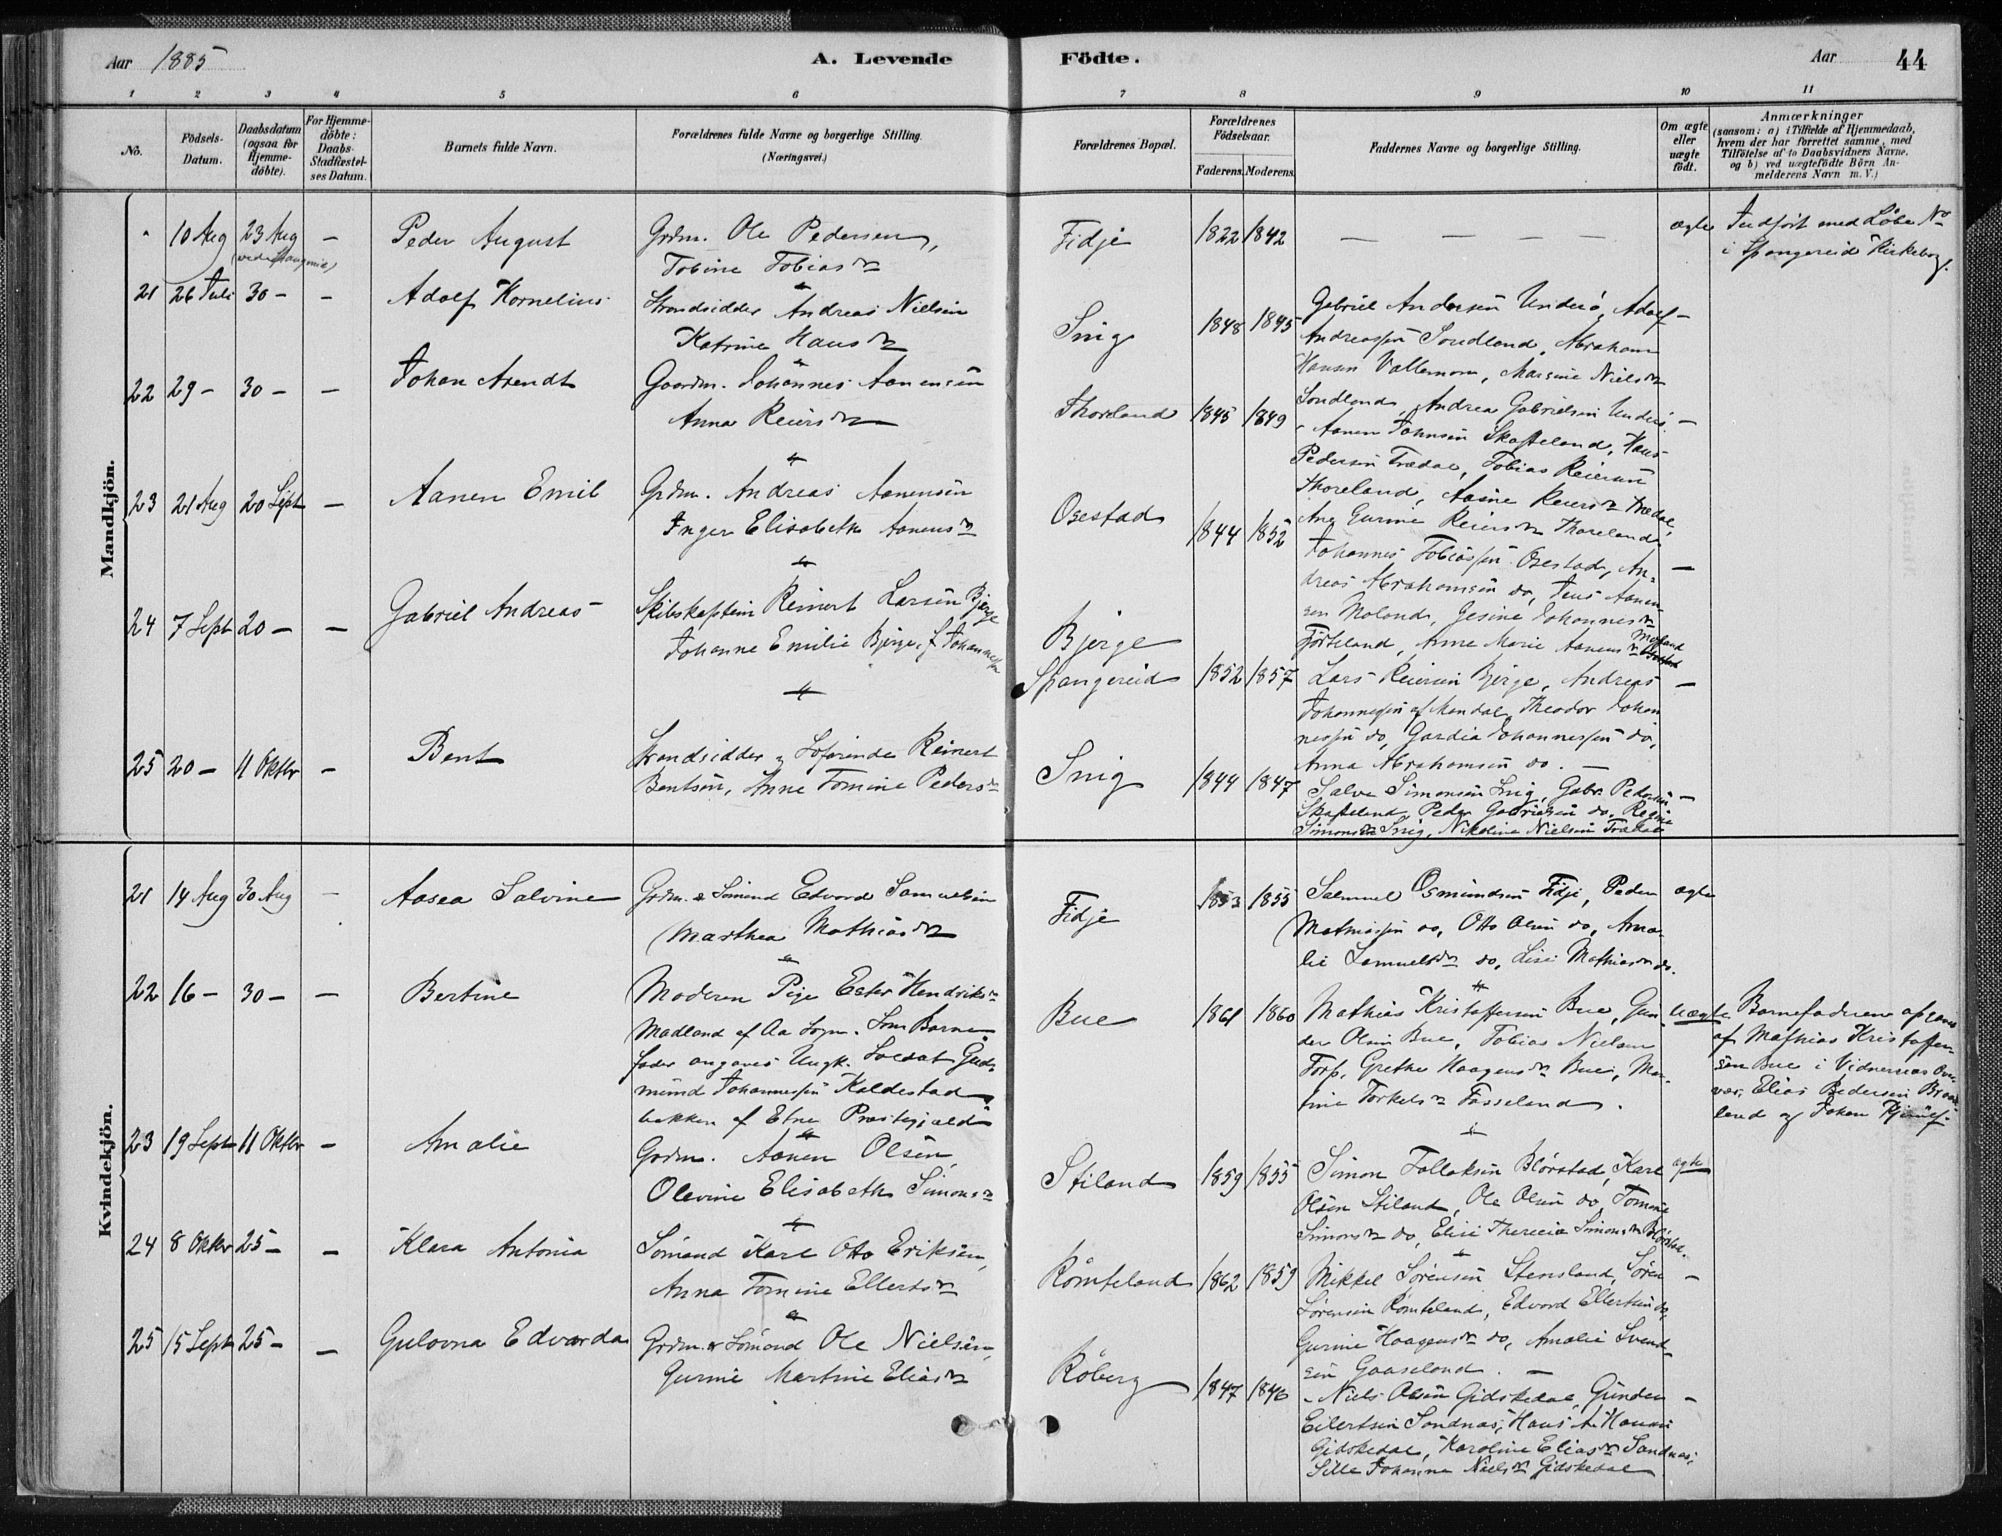 Aar 1885
A. Levende Födte.
Aar 44
1 2 3 4 5 6 7 8 9 10 11
No.
Födsels-Datum.
Daabsdatum (ogsaa for Hjemme-döbte).
For Hjemme-döbte: Daabs-Stadfæstel-ses Datum.
Barnets fulde Navn.
Forældrenes fulde Navne og borgerlige Stilling.
(Næringsvei.)
Forældrenes Bopæl.
Forældrenes Födselsaar.
Faderens. Moderens.
Faddernes Navne og borgerlige Stilling.
Om ægte eller uægte födt.
Anmærkninger
(saasom: a) i Tilfælde af Hjemmedaab,
hvem der har forrettet samme, med
Tilföielse af to Daabsvidners Navne,
og b) ved uægtefödte Börn An-
melderens Navn m. V.)
Mandkjön.
" 10 Aug 23 Aug – Peder August
Grdm. Ole Pedersen,
Tobine Tobiasdr
Fidje 1822 1842 – – – – ægte
Indført med Løbe No
i Spangereid Kirkebog.
21 26 Juli 30 – – Adolf Kornelius
Strandsidder Andreas Nielsen
Katrine Hansdr
Snig 1848 1845
Gabriel Andersen Underö, Adolf –
Andreassen Sondland, Abraham
Hansen Vallemoen, Marine Nielsdr
Sondland, Andrea Gabrielsen Underö.
22 29 – 30 – – Johan Arendt
Gaardm. Johannes Aanensen
Anna Reiersdr
Thoreland 1845 1849 –
Aanen Johnsen Skofteland, Hans
Pedersen Trædal, Tobias Reiersen
Thoreland, Aasine Reiersdr Trædal,
Ane Gurine Reiersdr Thoreland
23 21 Aug 20 Sept – Aanen Emil
Grdm. Andreas Aanensen
Inger Elisabeth Aanensdr
Osestad 1844 1852
Johannes Tobiassen Osestad, An- –
dreas Abrahamsen do, Jens Aanen-
sen Moland, Gesine Johannesdr
Fjörteland, Anne Marie Aanensdr
24 7 Sept 20 – – Gabriel Andreas
Skibskaptein Reinert Larsen Bjerge
Johanne Emilie Bjerge, f. Johannessen
Bjerge
Spangereid 1852 1857
Lars Reiersen Bjerge, Andreas –
Johannessen af Mandal, Theodor Johan
nessen do, Gardia Johannessen do,
Anna Abrahamsen do. –
25 20 – 11 Oktbr – Bent
Strandsidder & Søfarende Reinert
Bentsen, Anne Tomine Pedersdr
Snig 1844 1847
Salve Simonsen Snig, Gabr. Pedersen –
Skofteland, Peder Gabrielsen do, Regine
Simonsdr Snig, Nikoline Nielsen Trædal
Kvindekjön.
21 14 Aug 30 Aug – Aasea Salvine
Grdm. & Sömand Edvard Samuelsen
Marthea Mathiasdr
Fidje 1853 1855
Salmuel Osmundsen Fidje, Peder ægte
Mathiassen do, Otto Olsen do, Ama-
lie Samuelsdr do, Lise Mathiasdr do.
22 16 – 30 – – Bertine
Moderen Pige Ester Hendriksdr
Madland af Aa Sogn. Som Barne
fader angaves Ungk. Soldat Gud-
mund Johannessen Kaldestad
bakken af Etne Præstegjæld
Bue 1861 1860
Mathias Kristoffersen Bue, Gun uægte
der Olsen Bue, Tobias Nielsen
Torp, Grethe Haagensdr Bue, Mar-
tine Torkelsdr Fasseland.
Barnefaderen opgivet
af Mathias Kristoffer-
sen Bue i Vidnernes Over
vær, Elias Pedersen
land og Johan
23 19 Sept 11 Oktbr – Amalie
Grdm. Aanen Olsen
Olevine Elisabeth Simonsdr
Stiland 1859 1855
Simon Tollaksen Blörstad, Karl ægte
Olsen Stiland, Ole Olsen do, Tomine
Simonsdr do, Elise Therecia Simonsdr Blörstad.
24 8 Oktbr 25 – – Klara Antonia
Sömand Karl Otto Eriksen,
Anna Tomine Ellertsdr
Römteland 1862 1859
Mikkel Sörensen Stensland, Sören –
Sörensen Römteland, Edvard Ellertsen do,
Gurine Haagensdr do, Amalie Svend-
sen Gaaseland. –
25 15 Sept 25 – – Gulovna Edvarda
Grdm. & Sömand Ole Nielsen,
Gurine Martine Eliasdr
Röberg 1847 1846
Niels Olsen Gidskedal, Gunder –
Eilertsen Sandnæs, Hans A. Hansen
Gidskedal, Karoline Eliasdr Sandnæs,
Sille Johanna Nielsdr Gidskedal